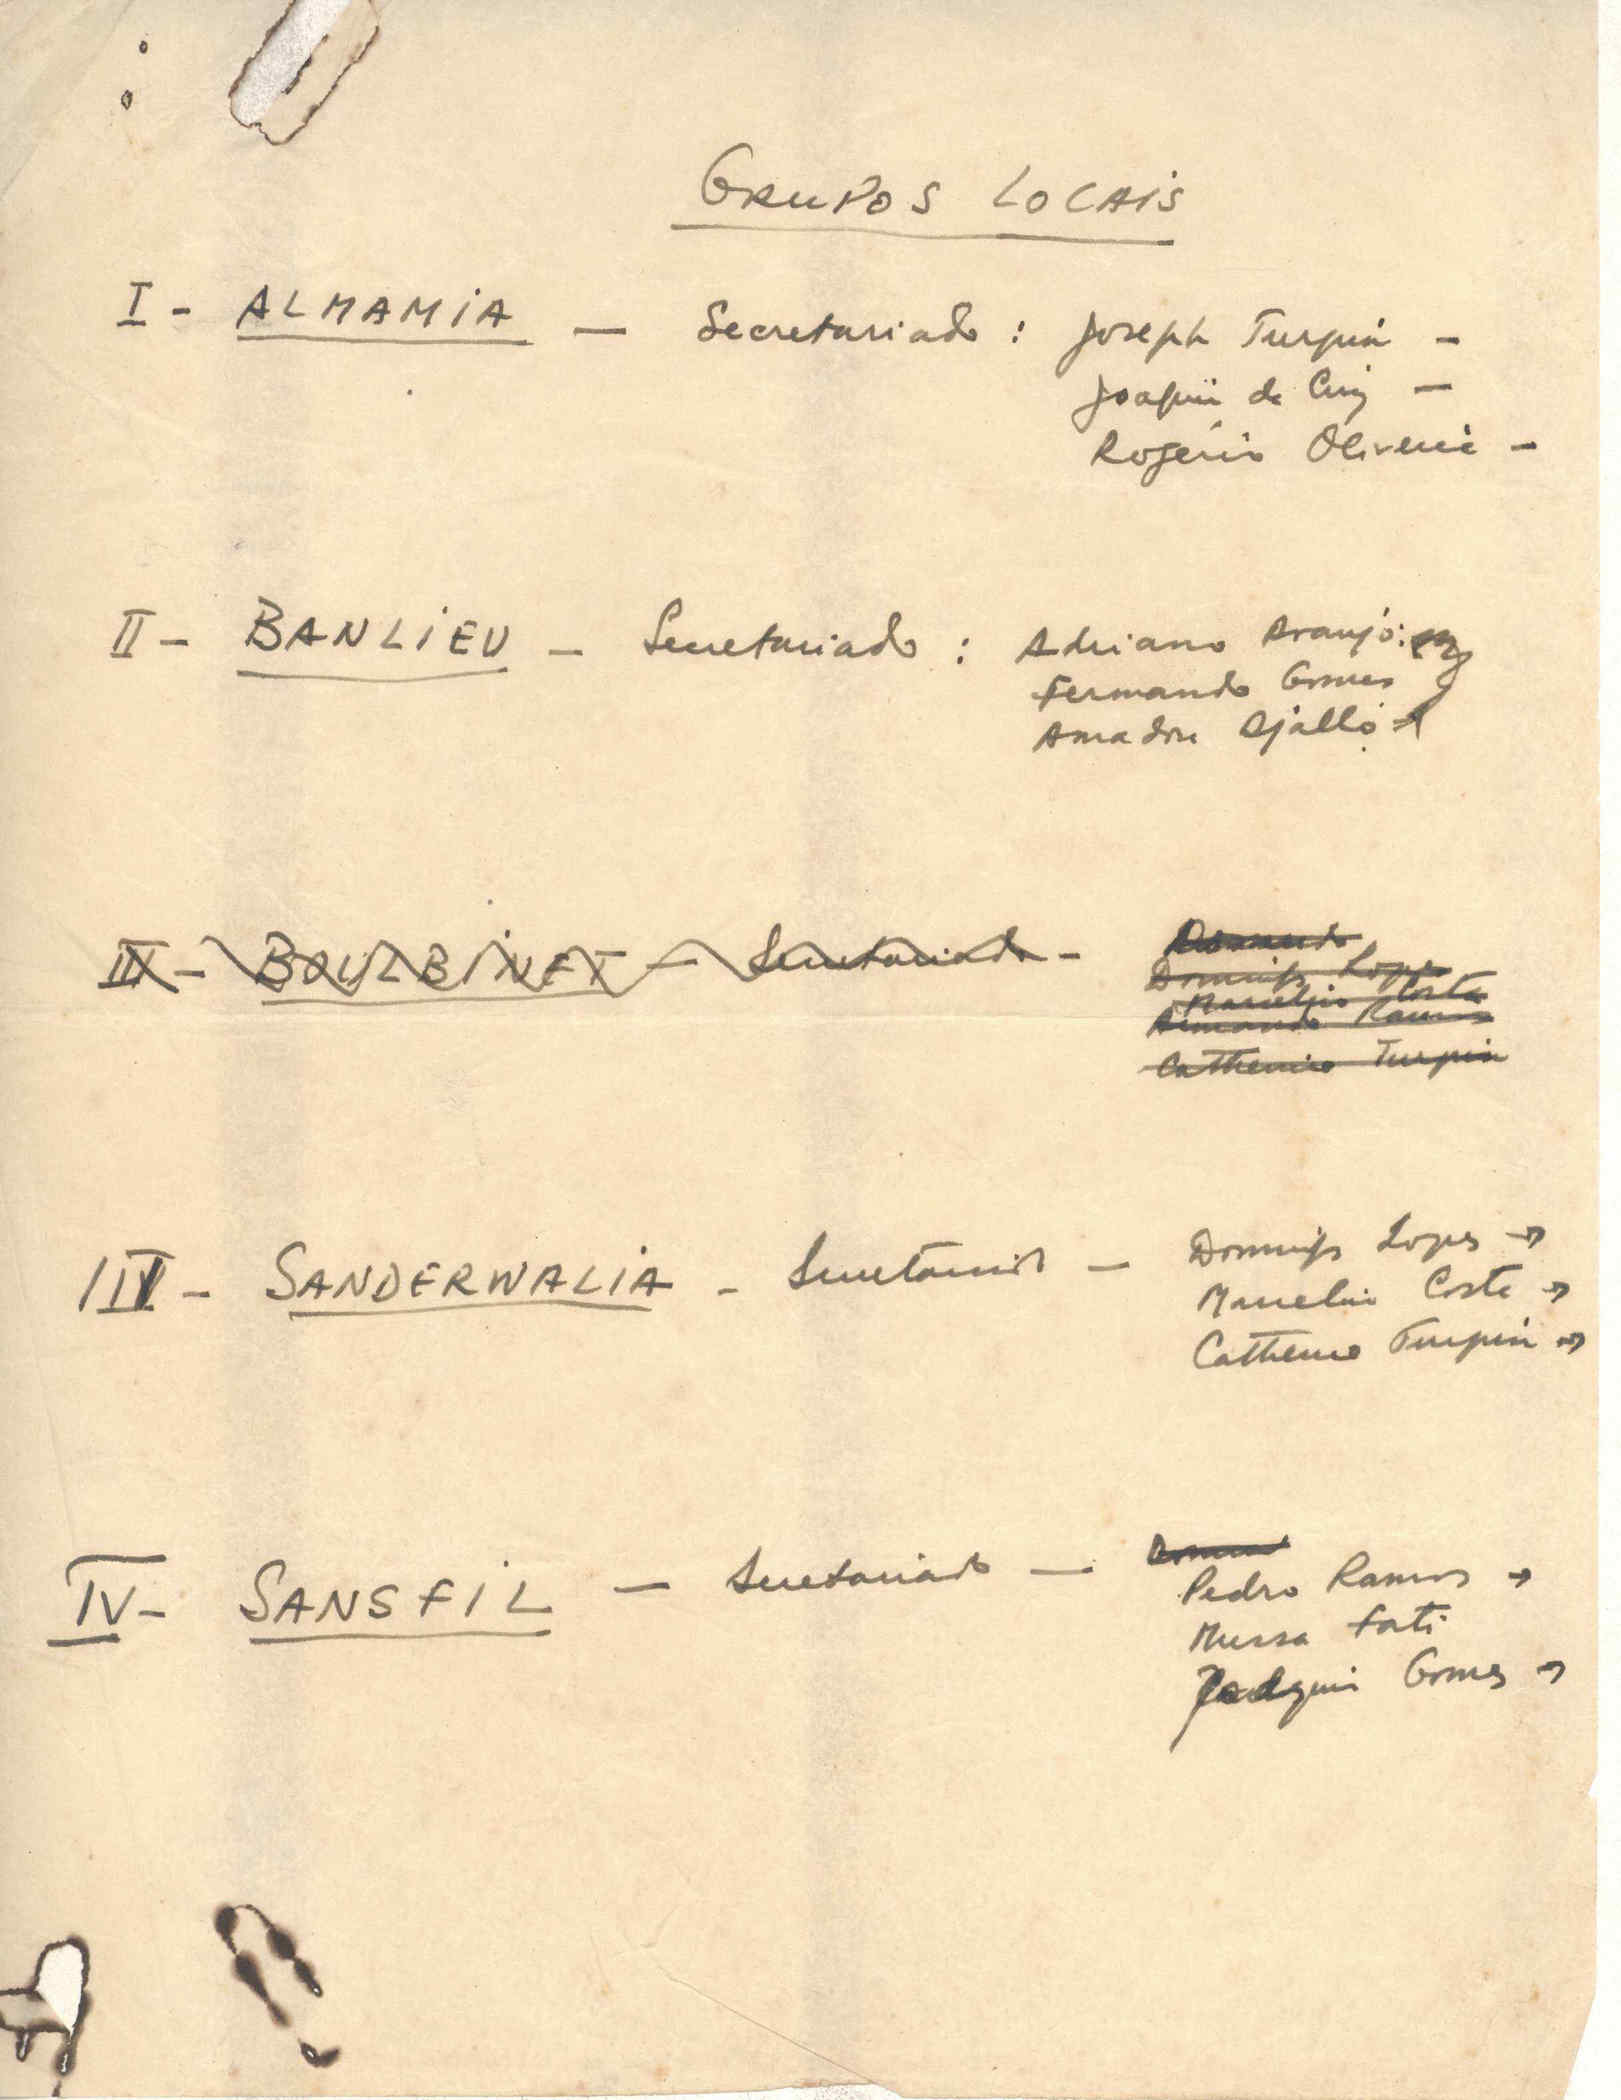 GRUPOS LOCAIS
I - ALMAMIA — Secretariado : Joseph Turpin -
Joaquim de —
Rogério Oliveira -
II - BANLIEU - Secretariado : Adriano Araujo:
Fernando Gomes
Amadou Djalló
III - BOULBINET — Secretariado -
Domingos Lopes
Marcelino Costa
Armando Ramos
Catherino Turpin
III - SANDERWALIA - Secretariado - Domingos Lopes →
Marcelino Costa →
Catherino Turpin →
IV - SANSFIL — Secretariado —
Pedro Ramos →
Mussa Fati
Joaquim Gomes →